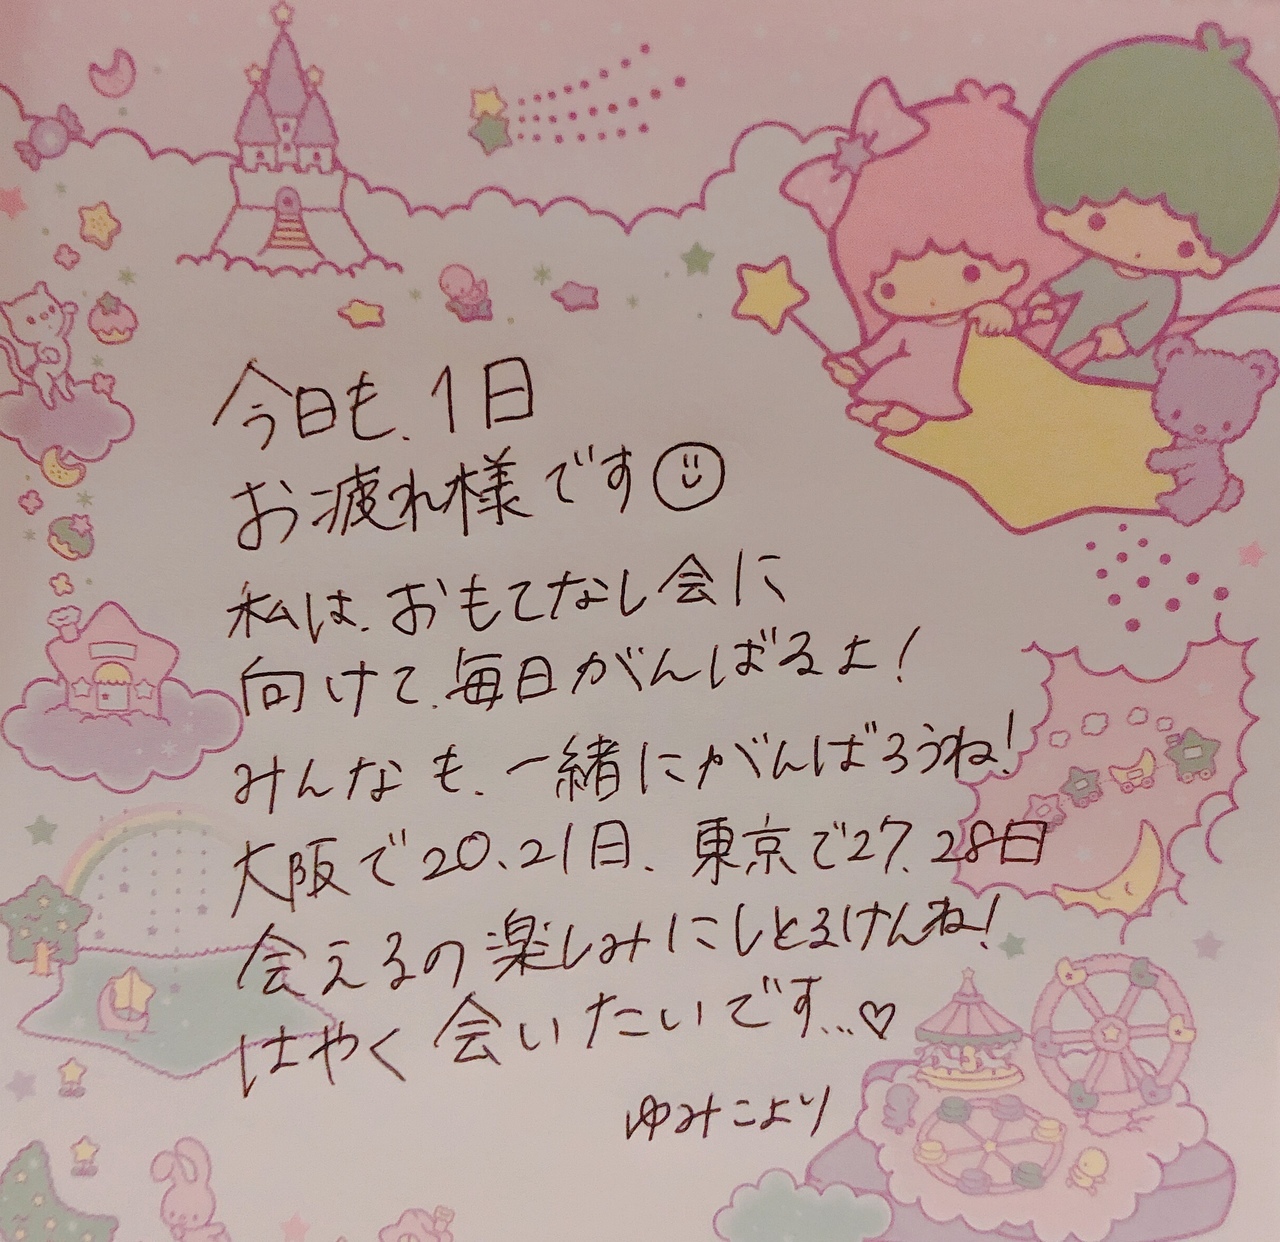 今日も、1日
お疲れ様です
私は、おもてなし会に
向けて、毎日がんばるよ！
みんなも、一緒にがんばろうね！
大阪で20、21日、東京で27、28日
会えるの楽しみにしとるけんね！
はやく会いたいです…♡
ゆみこより